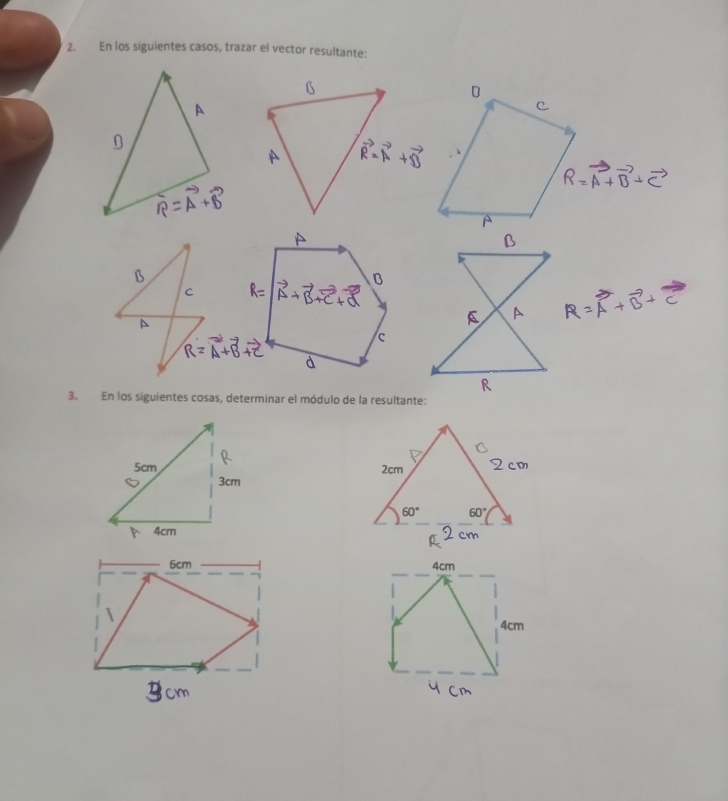 2. En los siguientes casos, trazar el vector resultante:
B
A
R = A + B
B
A
R = A + B
B
C
A
R = A + B + C
B
C
A
R = A + B + C
A
B
R = A + B + C + d
C
d
B
A
R = A + B + C
R
3. En los siguientes cosas, determinar el módulo de la resultante:
5cm
B
R
3cm
A 4cm
2cm
A
B
2 cm
60°
60°
R 2 cm
6cm
cm
4cm
4cm
4 cm